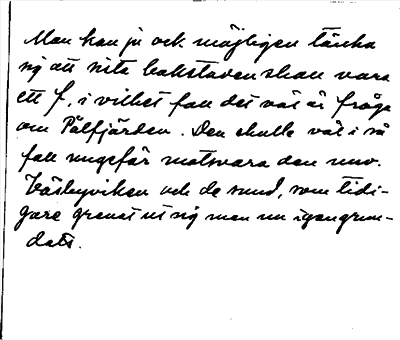 Man kan ju och möjligen tänka
sig att sista bokstaven skall vara
ett f, i vilket fall det väl är fråga
om Pålfjärden. Den skulle väl i så
fall ungefär motsvara den nuv.
Väsbyviken och de sund, som tidi-
gare grenat ut sig men nu igengrun-
dats.